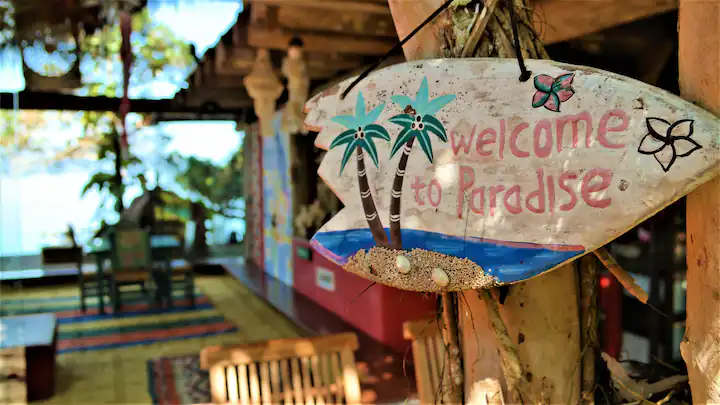 welcome
to Paradise